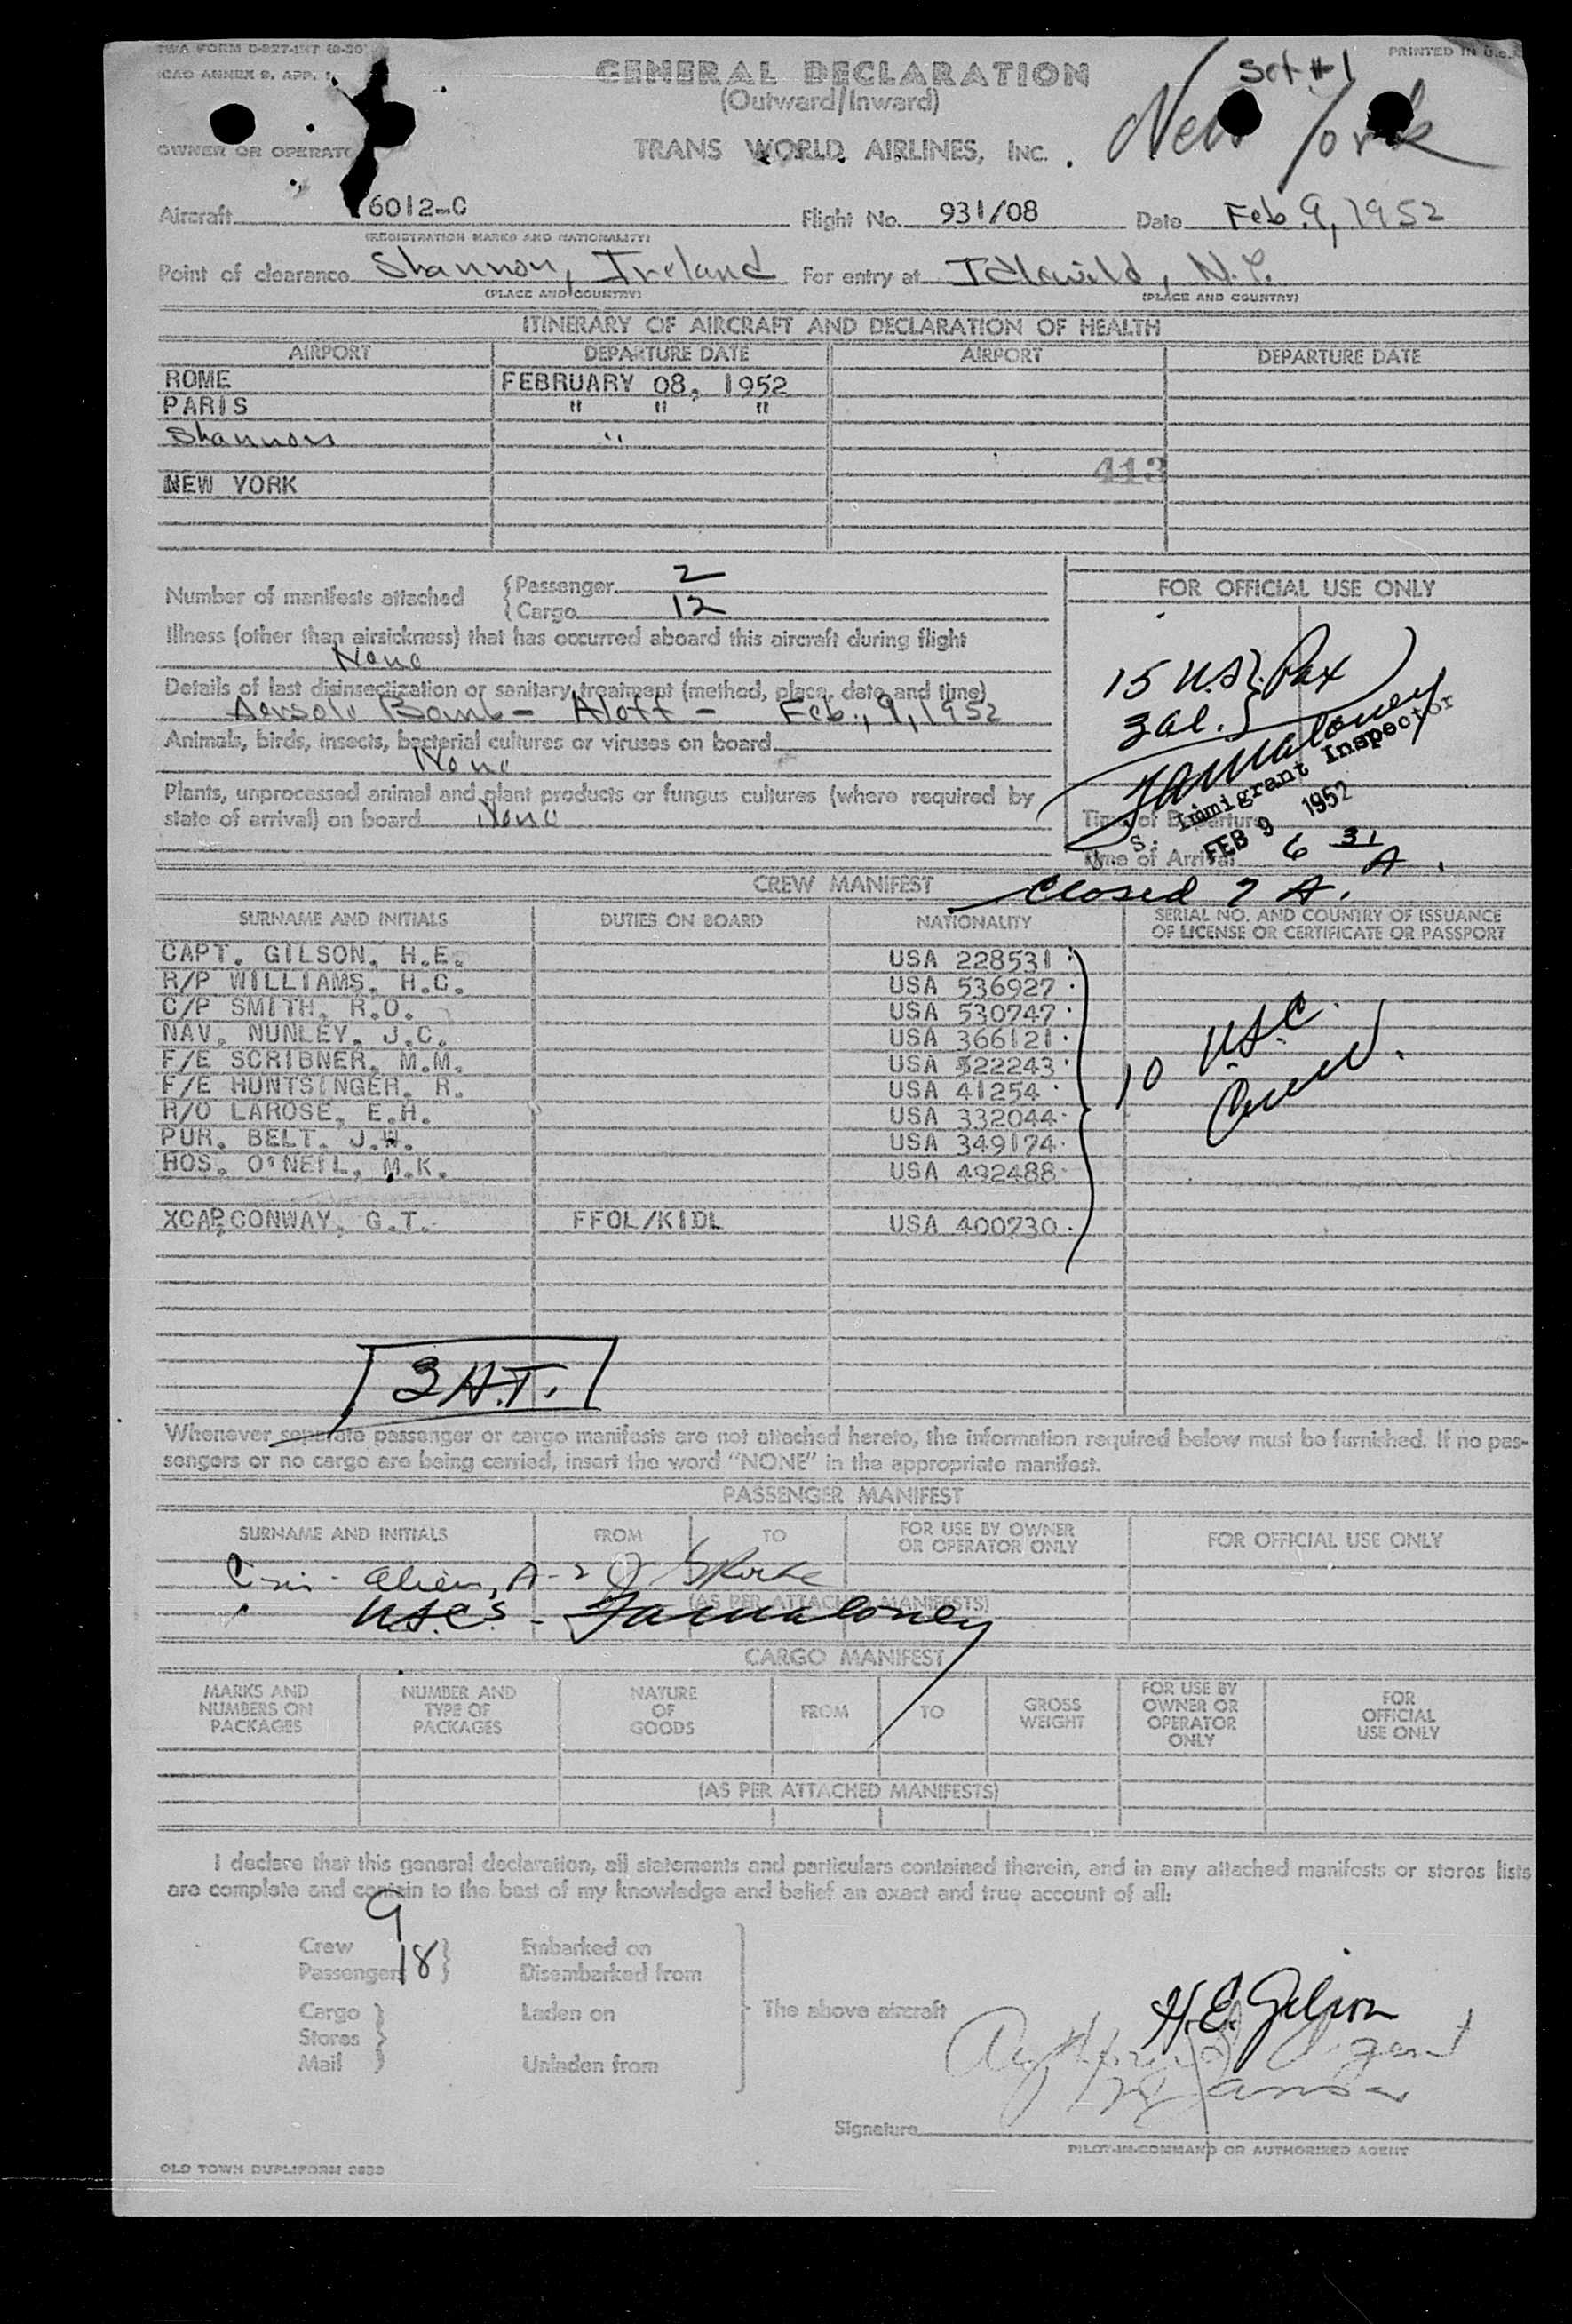 TWA FORM C-927-INT (8-50)
PRINTED IN U.S.
ICAO ANNEX 9. APP. 1
GENERAL DECLARATION
Set #1
(Outward/Inward)
New York
OWNER OR OPERATO
TRANS WORLD AIRLINES, INC.
Aircraft 6012-C Flight No. 931/08 Date Feb. 9, 1952
(REGISTRATION MARKS AND NATIONALITY)
Point of clearance Shannon, Ireland For entry at Idlewild, N.Y.
(PLACE AND COUNTRY) (PLACE AND COUNTRY)
ITINERARY OF AIRCRAFT AND DECLARATION OF HEALTH
AIRPORT DEPARTURE DATE AIRPORT DEPARTURE DATE
ROME FEBRUARY 08, 1952
PARIS " " "
Shannon "
413
NEW YORK
Number of manifests attached Passenger 2
Cargo 12
FOR OFFICIAL USE ONLY
Illness (other than airsickness) that has occurred aboard this aircraft during flight
None
15 U.S. Pax
3 al.
Details of last disinsectization or sanitary treatment (method, place, date and time)
Aersole Bomb - Aloft - Feb., 9, 1952
Animals, birds, insects, bacterial cultures or viruses on board
None
Plants, unprocessed animal and plant products or fungus cultures (where required by
state of arrival) on board None
Immigrant Inspector
Time of Departure
FEB 9 1952
Time of Arrival 6 31 A.
CREW MANIFEST Closed 7 A.
SURNAME AND INITIALS DUTIES ON BOARD NATIONALITY SERIAL NO. AND COUNTRY OF ISSUANCE
OF LICENSE OR CERTIFICATE OR PASSPORT
CAPT. GILSON, H.E. USA 228531
R/P WILLIAMS, H.C. USA 536927
C/P SMITH, R.O. USA 530747
NAV. NUNLEY, J.C. USA 366121
F/E SCRIBNER, M.M. USA 522243
F/E HUNTSINGER, R. USA 41254
R/O LAROSE, E.H. USA 332044
PUR. BELT, J.W. USA 349174
HOS. O'NEIL, M.K. USA 492488
10 USC
Crew.
XCAP. CONWAY, G.T. FFOL/KIDL USA 400730
3 A.T.
Whenever separate passenger or cargo manifests are not attached hereto, the information required below must be furnished. If no pas-
sengers or no cargo are being carried, insert the word "NONE" in the appropriate manifest.
PASSENGER MANIFEST
SURNAME AND INITIALS FROM TO FOR USE BY OWNER
OR OPERATOR ONLY FOR OFFICIAL USE ONLY
aliens, A-2
(AS PER ATTACHED MANIFESTS)
USC's -
CARGO MANIFEST
MARKS AND
NUMBERS ON
PACKAGES
NUMBER AND
TYPE OF
PACKAGES
NATURE
OF
GOODS
FROM
TO
GROSS
WEIGHT
FOR USE BY
OWNER OR
OPERATOR
ONLY
FOR
OFFICIAL
USE ONLY
(AS PER ATTACHED MANIFESTS)
I declare that this general declaration, all statements and particulars contained therein, and in any attached manifests or stores lists
are complete and contain to the best of my knowledge and belief an exact and true account of all:
Crew 9 Embarked on
Passengers 18 Disembarked from
Cargo Laden on The above aircraft H.E. Gilson
Stores
Mail Unladen from
Signature
PILOT-IN-COMMAND OR AUTHORIZED AGENT
OLD TOWN DUPLIFORM 3833